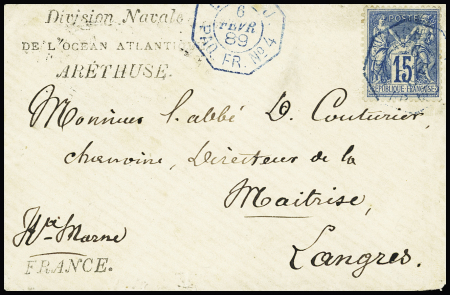 Division Navale
DE L'OCÉAN ATLANTI
ARÉTHUSE.
6
FEVR
89
PAQ. FR. Nº4
POSTES
15
REPUBLIQUE FRANCAISE
Monsieur l'abbé D. Couturier,
chanoine, Directeur de la
Maitrise,
Langres.
Hte Marne
FRANCE.